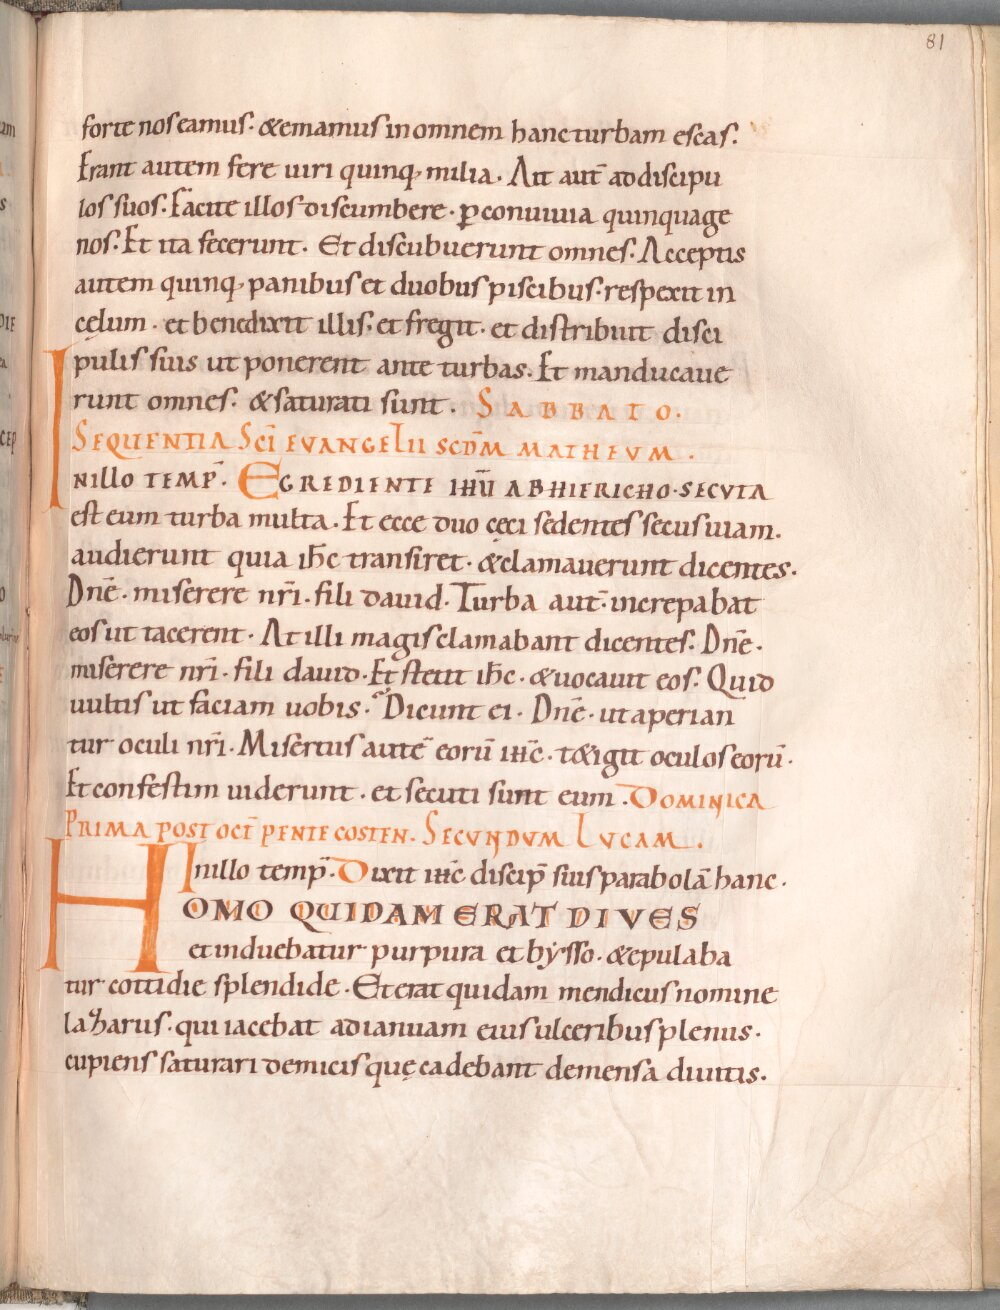 81
forte nos eamus. & emamus in omnem hanc turbam escas.
Erant autem fere uiri quinq; milia. Ait aut̄ ad discipu
los suos. Facite illos discumbere. ꝑ conuiuia quinquage
nos. Et ita fecerunt. Et discubuerunt omnes. Acceptis
autem quinq; panibus et duobus piscibus. respexit in
cęlum. et benedixit illis. et fregit. et distribuit disci
pulis suis ut ponerent ante turbas. Et manducaue
runt omnes. & saturati sunt. SABBATO.
SEQUENTIA SC̄I EVANGELII SCD̄M MATHEVM.
INILLO TEMP̄. EGREDIENTE IHŪ AB HIERICHO. SECVTA
est eum turba multa. Et ecce duo cęci sedentes secus uiam.
audierunt quia ih̄c transiret. & clamauerunt dicentes.
Dn̄e. miserere nr̄i. fili dauid. Turba aut̄. increpabat
eos ut tacerent. At illi magis clamabant dicentes. Dn̄e.
miserere nr̄i. fili dauid. Et stetit ih̄c. & uocauit eos. Quid
uultis ut faciam uobis. Dicunt ei. Dn̄e. ut aperian
tur oculi nr̄i. Misertus autē eorū ih̄c. t&igit oculos eorū.
Et confestim uiderunt. et secuti sunt eum. DOMINICA
PRIMA POST OCT̄ PENTECOSTEN. SECUNDUM LUCAM.
Inillo temp̄. Dixit ih̄c discip̄ suis parabolā hanc.
HOMO QUIDAM ERAT DIVES
et induebatur purpura et bysso. & epulaba
tur cottidie splendide. Et erat quidam mendicus nomine
lazarus. qui iacebat ad ianuam eius ulceribus plenus.
cupiens saturari de micis quę cadebant de mensa diuitis.